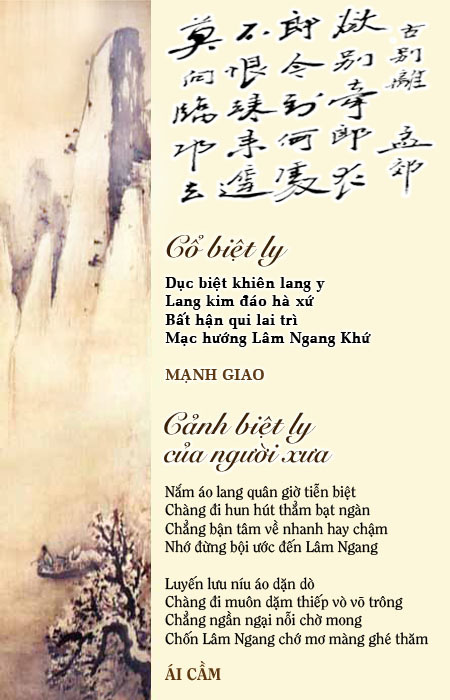 古别離 孟郊
欲别牽郎衣
郎今到何處
不恨歸来遲
莫向臨邛去
Cổ biệt ly
Dục biệt khiên lang y
Lang kim đáo hà xứ
Bất hận qui lai trì
Mạc hướng Lâm Ngang Khứ
MẠNH GIAO
Cảnh biệt ly
của người xưa
Nắm áo lang quân giờ tiễn biệt
Chàng đi hun hút thẳm bạt ngàn
Chẳng bận tâm về nhanh hay chậm
Nhớ đừng bội ước đến Lâm Ngang
Luyến lưu níu áo dặn dò
Chàng đi muôn dặm thiếp vò võ trông
Chẳng ngần ngại nỗi chờ mong
Chốn Lâm Ngang chớ mơ màng ghé thăm
ÁI CẦM